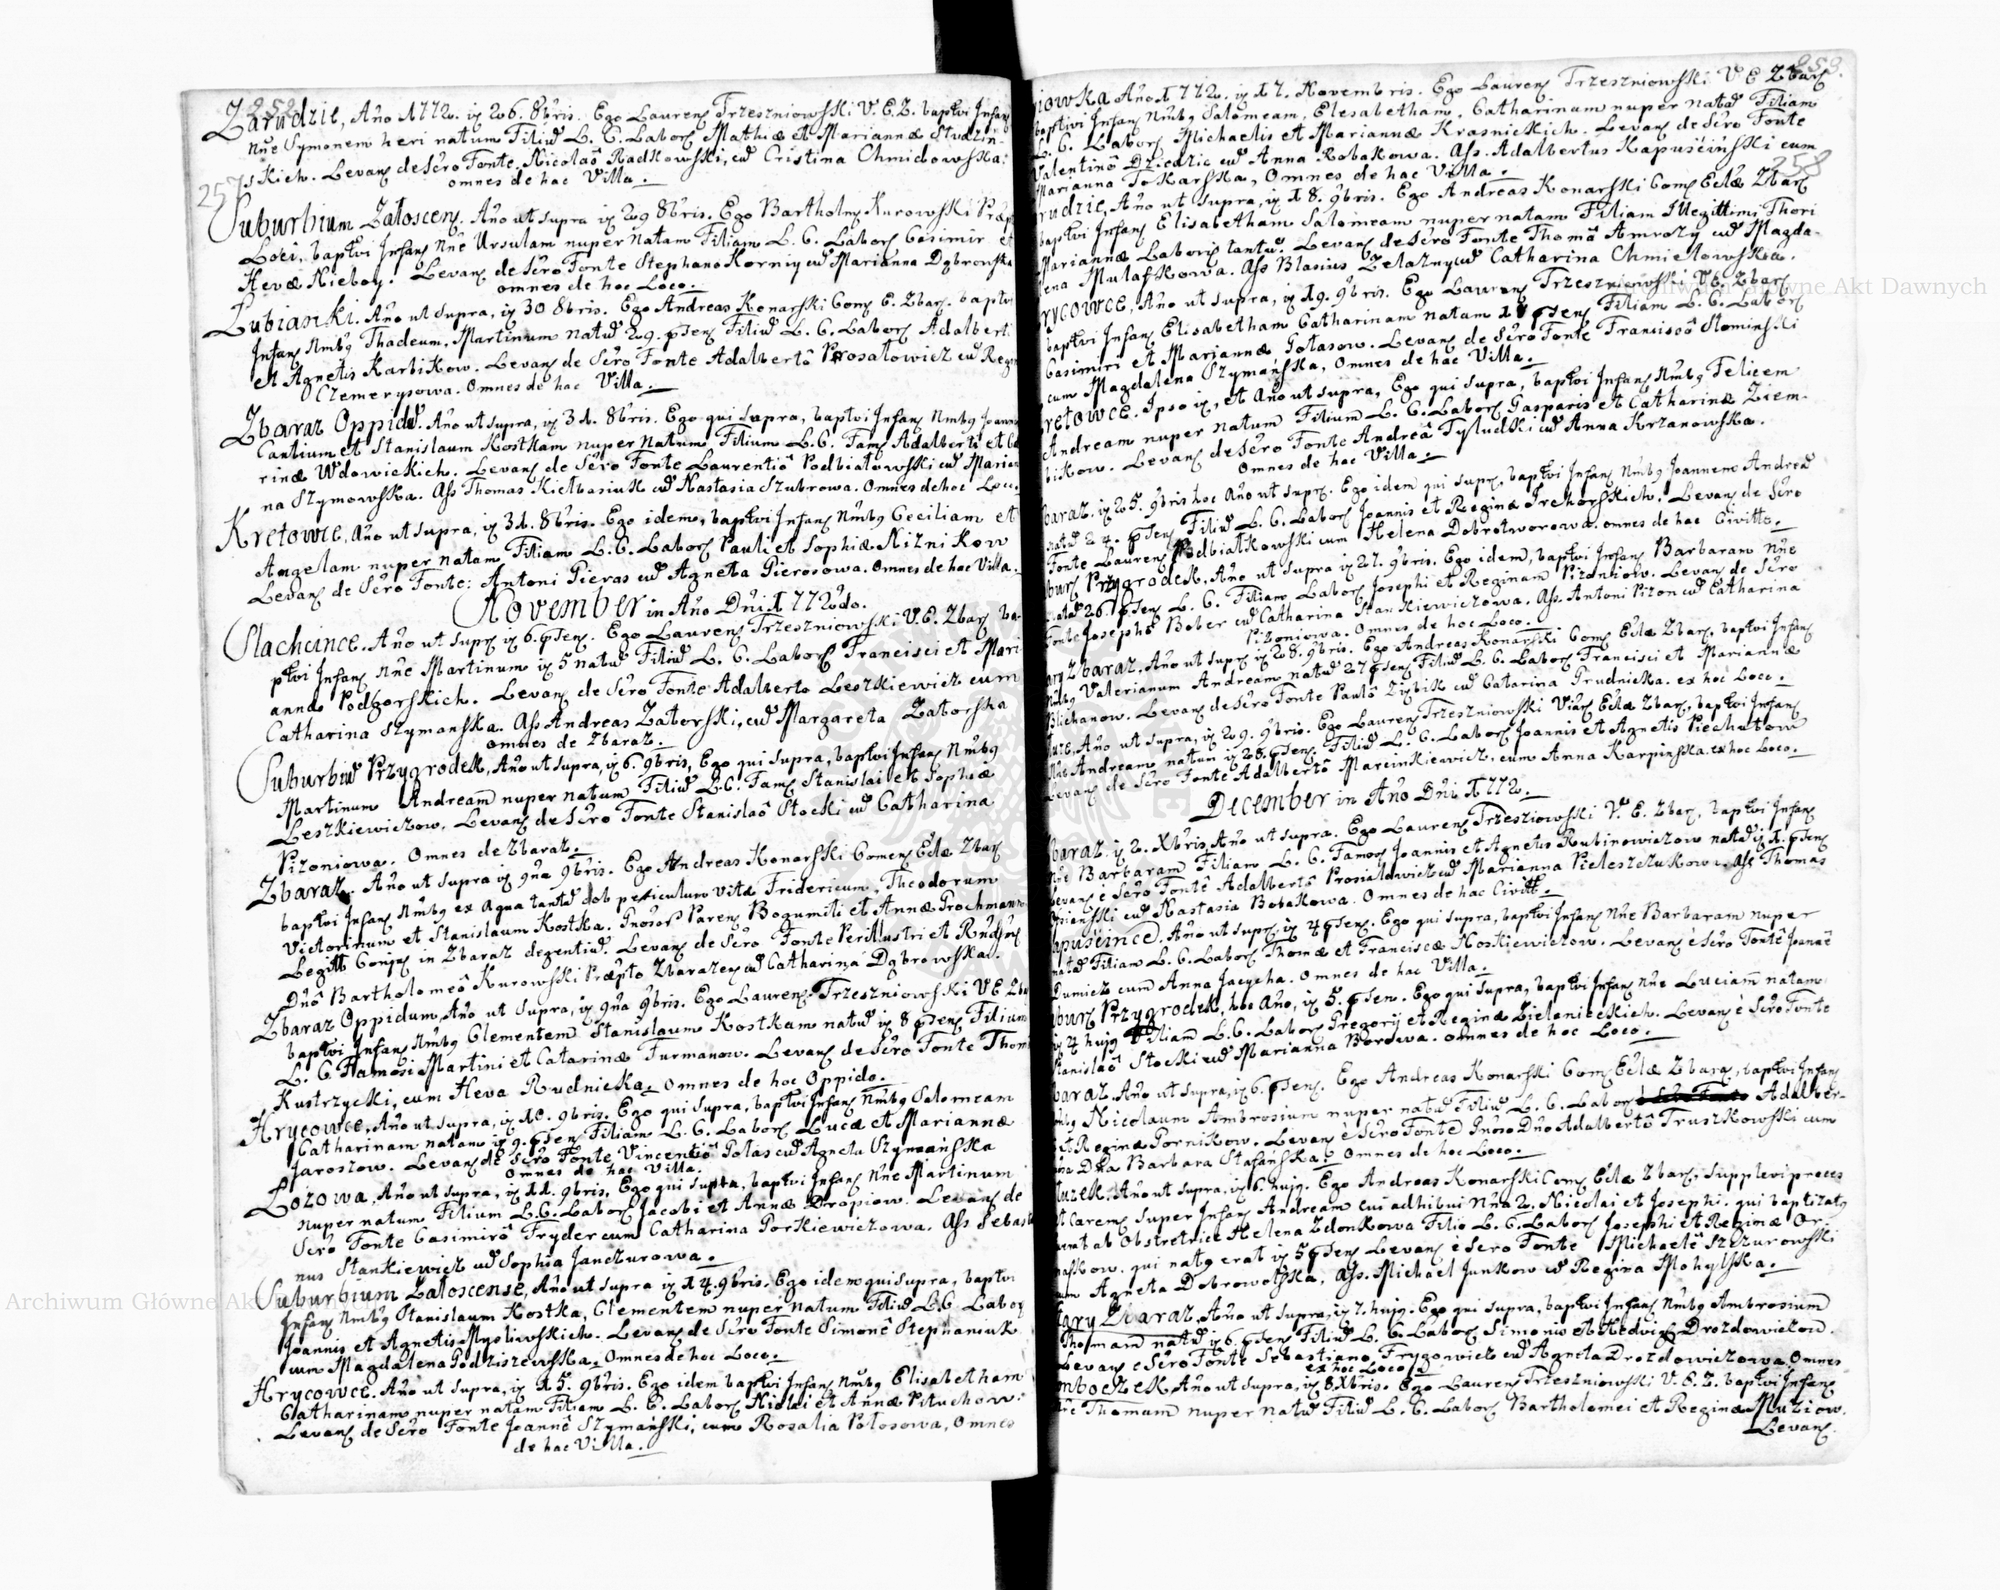 258
Zarudzie, Año 1772. ỹ 26. 8bris. Ego Laurens Trzeszniowski V. E. Z. baptivi Infans
Nñe Symonem heri natum Filiũ L. C. Labors Mathiæ et Mariannæ Studzin-
skich. Levans de Sčro Fonte Nicolaô Radkowski, cũ Cristina Chmidowska.
omnes de hac Villa.
257
Suburbium Załoscens. Año ut supra ỹ 29 8bris. Ego Bartholms Kurowski Præpt
Loci, baptivi Infans Nñe Ursulam nuper natam Filiam L. C. Labors Casimir et
Hevæ Nieboy. Levans de Sčro Fonte Stephano Korniy cũ Marianna Dąbrowska
omnes de hoc Loco.
Lubianki. Año ut supra, ỹ 30 8bris. Ego Andreas Konarski Coms E. Zbars. baptivi
Infans Nmbq Thadeum, Martinum natũ 29. psens Filiũ L. C. Labors Adalberti
et Agnetis Karbikow. Levans de Sčro Fonte Adalbertô Prosałowicz cũ Regin
Czemerysowa. Omnes de hac Villa.
Zbaraz Oppidũ. Año ut supra, ỹ 31. 8bris. Ego qui supra, baptivi Infans Nmbq Joanne
Cantium et Stanislaum Kostkam nuper natum, Filium L. C. Fams Adalberti et Ca
rinæ Wdowickich. Levans de Sčro Fonte Laurentiô Podbiałowski cũ Marian
na Szymowska. Ass Thomas Kiełbasiuk cũ Nastasia Szubrowa. Omnes de hoc Loco.
Kretowce, Año ut supra, ỹ 31. 8bris. Ego idem, baptivi Infans Nmbq Ceciliam et
Angelam nuper natam Filiam L. C. Labors Pauli et Sophiæ Niznikow
Levans de Sčro Fonte: Antoni Pieras cũ Agneta Pierosowa. Omnes de hac Villa.
November in Año Dñi 1772do.
Stacheince. Año ut supr ỹ 6. psens. Ego Laurens Trzeszniowski V. E. Zbars ba-
ptivi Infans Nñe Martinum ỹ 5 natũ Filiũ L. C. Labors Francisci et Mari-
annæ Podgorskich. Levans de Sčro Fonte Adalberto Leszkiewicz cum
Catharina Szymanska. Ass Andreas Zatorski, cũ Margareta Zatorska
omnes de Zbaraz.
Suburbiũ Przygrodek, Año ut supra, ỹ 6. 9bris, Ego qui supra, baptivi Infans Nmbq
Martinum Andream nuper natum Filiũ L. C. Fams Stanislai et Sophiæ
Leszkiewiczow. Levans de Sčro Fonte Stanislaô Stocki cũ Catharina
Pizoniowa. Omnes de Zbaraz.
Zbaraz. Año ut supra ỹ 9na 9bris. Ego Andreas Konarski Comens Eclæ Zbars
baptivi Infans Nmbq ex aqua tantũ dob periculum vitæ Fridericum, Theodorum
Victorinum et Stanislaum Kostka. Gnosor Parens Bogumili et Annæ Grochmann
Legitt Conjus in Zbaraz degentiũ. Levans de Sčro Fonte Perillustri et Rndssms
Dnô Bartholomeô Kurowski Præpto Zbarazens cũ Catharina Dąbrowska.
Zbaraz Oppidum, Año ut supra, ỹ 9na 9bris. Ego Laurens Trzeszniowski V E Zba
baptivi Infans Nmbq Clementem Stanislaum Kostkam natũ ỹ 8 psens Filium
L. C. Famosi Martini et Catarinæ Furmanow. Levans de Sčro Fonte Thom
Kustrzycki, cum Heva Rudnicka. Omnes de hoc Oppido.
Hrycowce, Año ut supra, ỹ 10. 9bris. Ego qui supra, baptivi Infans Nmbq Salomeam
Catharinam natam ỹ 9. psens Filiam L. C. Labors Lucæ et Mariannæ
Jaroszow. Levans de Sčro Fonte Vincentiô Gołas cũ Agneta Szymańska
omnes de hac Villa.
Łozowa, Año ut supra, ỹ 11. 9bris. Ego qui supra, baptivi Infans Nñe Martinum
nuper natum, Filium L. C. Labors Jacobi et Annæ Dropiow. Levans de
Sčro Fonte Casimirô Fryder cum Catharina Porkiewiczowa. Ass Sebast
nus Stankiewicz cũ Sophia Janczurowa.
Suburbium Załoscense, Año ut supra ỹ 14. 9bris. Ego idem qui supra, baptivi
Infans Nmbq Stanislaum Kostka, Clementem nuper natum Filiũ L. C. Labors
Joannis et Agnetis Mysliwskich. Levans de Sčro Fonte Simonê Stephaniuk
cum Magdalena Podziszewska, Omnes de hoc Loco.
Hrycowce. Año ut supra, ỹ 15. 9bris. Ego idem baptivi Infans Nmbq Elisabetham
Catharinam nuper natam Filiam L. C. Labors Niclai et Annæ Pituchow.
Levans de Sčro Fonte Joannê Szymański, cum Rosalia Połosowa, Omnes
de hac Villa.
259.
iowka Año 1772. ỹ 17. Novembris. Ego Laurens Trzeszniowski V E Zbars
baptivi Infans Nmbq Salomeam, Elesabetham, Catharinam nuper natũ Filiam
L. C. Labors Michaelis et Mariannæ Krasnickich. Levans de Sčro Fonte
Valentinô Dziedzic cũ Anna Robakowa. Ass. Adalbertus Kapuściński cum
Marianna Tokarska, Omnes de hac Villa.
258
rudzie, Año ut supra, ỹ 18. 9bris. Ego Andreas Konarski Coms Eclæ Zbars
baptivi Infans Elisabetham Salomeam nuper natam Filiam Illegittimi Thori
Mariannæ Laboris tantũ. Levans de Sčro Fonte Thomâ Amrozy cũ Magda-
lena Mulafkowa. Ass Blasius Zelazny cũ Catharina Chmielowska.
rycowce, Año ut supra, ỹ 19. 9bris. Ego Laurens Trzeszniowski V. E. Zbars
baptivi Infans Elisabetham Catharinam natam 17 psens Filiam L. C. Labors
Casimiri et Mariannæ Gołasow. Levans de Sčro Fonte Franciscô Słominski
cum Magdalena Szymańska, Omnes de hac Villa.
retowce. Ipso ỹ, et Año ut supra, Ego qui supra, baptivi Infans Nmbq Felicem
Andream nuper natum Filium L. C. Labors Gasparis et Catharinæ Ziem-
bikow. Levans de Sčro Fonte Andreâ Tyludki cũ Anna Krzanowska.
Omnes de hac Villa.
baraz. ỹ 25. 9bris hoc Año ut supr. Ego idem qui supr, baptivi Infans Nmbq Joannem Andreã
natũ 24. psens Filiũ L. C. Labors Joannis et Reginæ Jrehorskich. Levans de Sčro
Fonte Laurens Podbiałkowski cum Helena Dobrotworowa. omnes de hac Civitte.
burs Przygrodek, Año ut supra ỹ 27. 9bris. Ego idem, baptivi Infans Barbaram Nñe
natũ 26. psens L. C. Filiam Labors Josephi et Reginam Pizoniow. Levans de Sčro
Fonte Josephô Bober cũ Catharina Stankiewiczowa. Ass. Antoni Pizon cũ Catharina
Pizoniowa. Omnes de hoc Loco.
ary Zbaraz, Año ut supr ỹ 28. 9bris. Ego Andreas Konarski Coms Eclæ Zbars, baptivi Infans
Nmbq Valerianum Andream natũ 27 psens Filiũ L. C. Labors Francisci et Mariannæ
Olichanow. Levans de Sčro Fonte Paulô Ziybik cũ Catarina Grudnicka. ex hoc Loco.
Año ut supra, ỹ 29. 9bris. Ego Laurens Trzeszniowski Viars Eclæ Zbars, baptivi Infans
Nñe Andream natum ỹ 28. psens. Filiũ L. C. Labors Joannis et Agnetis Piechutow
Levans de Sčro Fonte Adalbertô Marcinkiewicz, cum Anna Karpinska. ex hoc Loco.
December in Año Dñi 1772.
baraz. ỹ 2. Xbris, Año ut supra. Ego Laurens Trzesziowski V. E. Zbars, baptivi Infans
Nñe Barbaram Filiam L. C. Famos Joannis et Agnetis Rutinowiczow natã ỹ 1. psens
Levans è Sčro Fonte Adalbertô Prosiałowicz cũ Marianna Pieleszczukowa. Ass Thomas
cũ Nastasia Bobakowa. Omnes de hac Civitt.
apuścince. Año ut supr, ỹ 4 psens. Ego qui supra, baptivi Infans Nñe Barbaram nuper
natã Filiam L. C. Labors Thomæ et Franciscæ Noskiewiczow. Levans è Sčro Fonte Joannê
Dumicz cum Anna Jacycha. Omnes de hac Villa.
burs Przygrodek, hoc Año, ỹ 5. psens. Ego qui supra, baptivi Infans Nñe Luciam natam
ỹ 4 hujq Filiam L. C. Labors Gregorij et Reginæ Zielonieckich. Levans è Sčro Fonte
Stanislaô Stocki cũ Marianna Borowa. Omnes de hoc Loco.
baraz. Año ut supra, ỹ 6. psens. Ego Andreas Konarski Coms Eclæ Zbars, baptivi Infans
Nmbq Nicolaum Ambrosium nuper natũ Filiũ L. C. Labors Adalber-
et Reginæ Gornikow. Levans è Sčro Fonte Gnoso Dño Adalbertô Truszkowski cum
Dña Barbara Stafańska. Omnes de hoc Loco.
luzek. Año ut supra, ỹ 6. hujq. Ego Andreas Konarski Coms Eclæ Zbars, supplevi proces
et Carens super Infans Andream cui adhibui Nña 2. Nicolai et Josephi. qui baptizatq
erat ab Obstetrice Helena Zdonkowa Filiũ L. C. Labors Josephi et Reginæ Or-
naskow. qui natq erat ỹ 5 psens Levans è Sčro Fonte Michaelê Szczurowski
cum Agneta Dobrowolska, Ass. Michael Junkow cũ Regina Mohylska.
ary Zbaraz, Año ut supra, ỹ 7. hujq. Ego qui supra, baptivi Infans Nmbq Ambrosium
Thomam natũ ỹ 6. psens Filiũ L. C. Labors Simonis et Hedvigs Drozdowiczow.
Levans è Sčro Fonte Sebastiano Frygowicz cũ Agneta Drozdowiczowa. Omnes
ex hoc Loco.
boczek, Año ut supra, ỹ 8. Xbris. Ego Laurens Trzeszniowski V. E. Z. baptivi Infans
Nñe Thomam nuper natũ Filiũ L. C. Labors Bartholomei et Reginæ Muziow.
Levans.
Archiwum Główne Akt Dawnych
Archiwum Główne Akt Dawnych